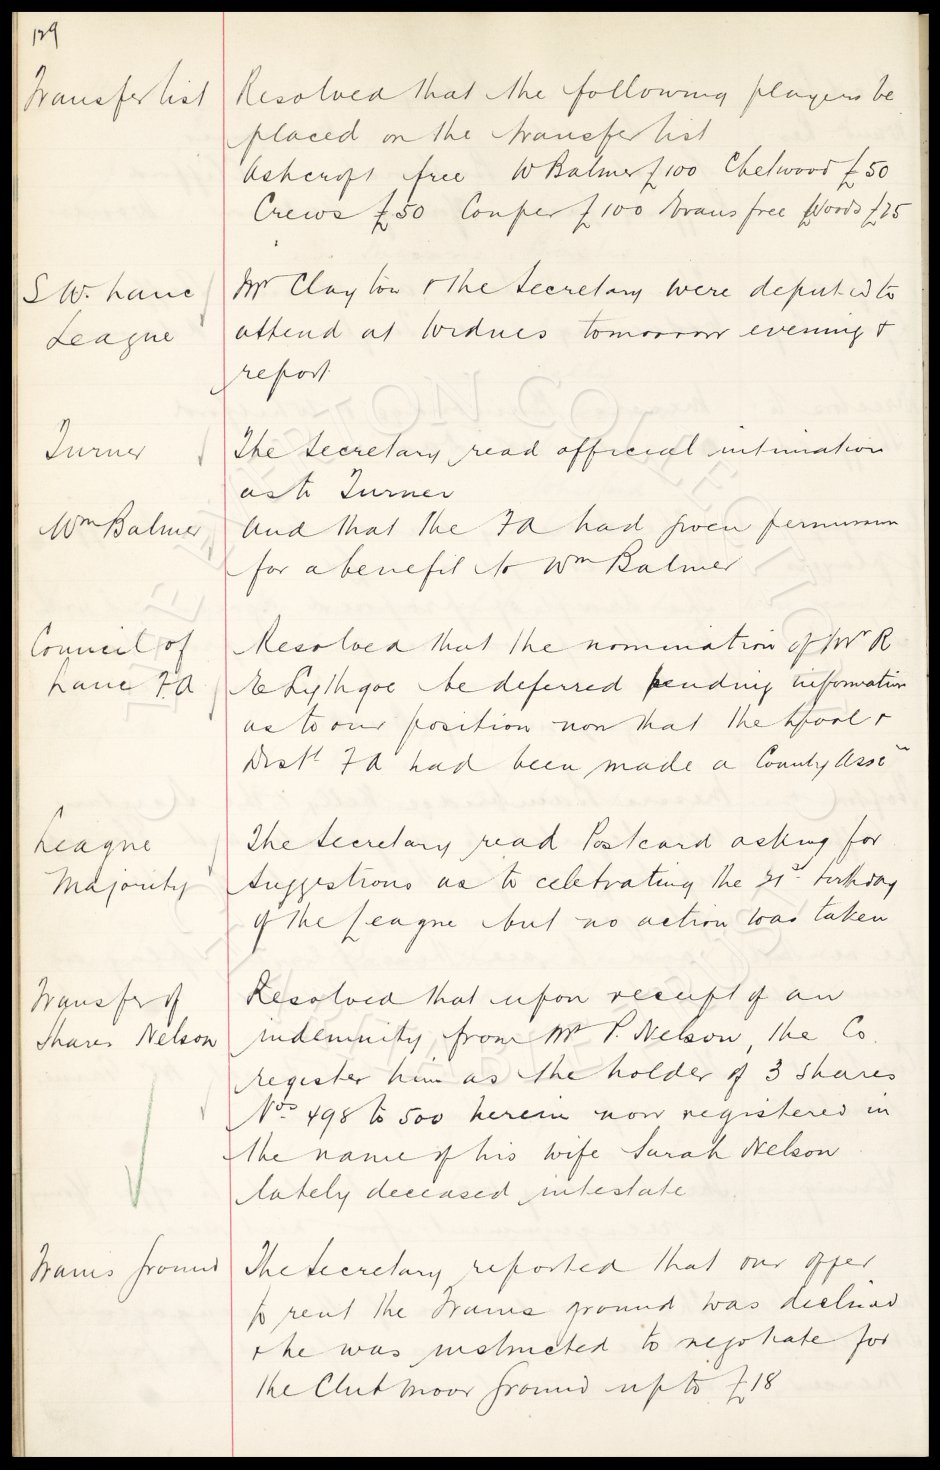 129
Transfer list Resolved that the following players be
placed on the transfer list
Ashcroft free W Balmer £100 Chetwood £50
Crews £50 Couper £100 Evans free Woods £25
S W. Lanc Mr Clayton & the Secretary were deputed to
League attend at Widnes tomorrow evening &
report
Turner The Secretary read official intimation
as to Turner
Wm Balmer And that the FA had given permission
for a benefit to Wm Balmer
Council of Resolved that the nomination of Mr R
Lanc FA E Lythgoe be deferred pending information
as to our position now that the Lpool &
Distt FA had been made a County Assn
League The Secretary read Postcard asking for
Majority suggestions as to celebrating the 21st birthday
of the League but no action was taken
Transfer of Resolved that upon receipt of an
Shares Nelson indemnity from Mr P. Nelson, the Co.
register him as the holder of 3 shares
Nos 498 to 500 herein now registered in
the name of his wife Sarah Nelson
lately deceased intestate
Trams Ground The Secretary reported that our offer
to rent the Trams ground was declined
& he was instructed to negotiate for
the Clubmoor Ground up to £18